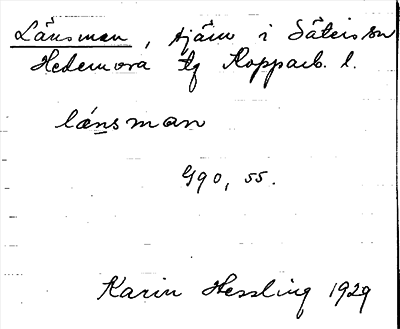 Länsman, tjärn i Säters sn
Hedemora tg Kopparb. l.
lánsman
G90, 55.
Karin Hessling 1929